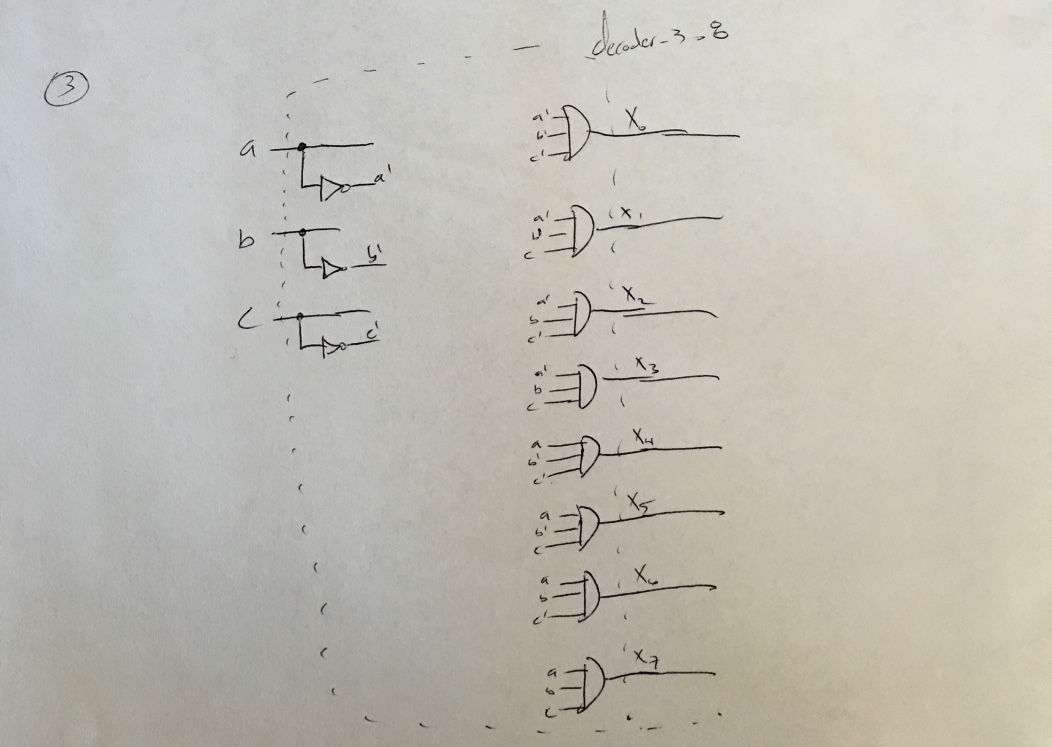 decoder-3-8
3
a
a'
b
b'
c
c'
a'
b'
c'
X0
a'
b'
c
X1
a'
b
c'
X2
a'
b
c
X3
a
b'
c'
X4
a
b'
c
X5
a
b
c'
X6
a
b
c
X7